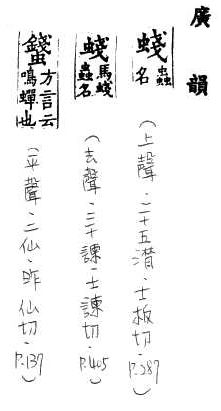 廣韻
蟲名
(上聲.二十五潸.士板切.P.287)
馬蟲名
(去聲.三十諫.士諫切.P.405)
方言云鳴蟬也
(平聲.二仙.昨仙切.P.139)